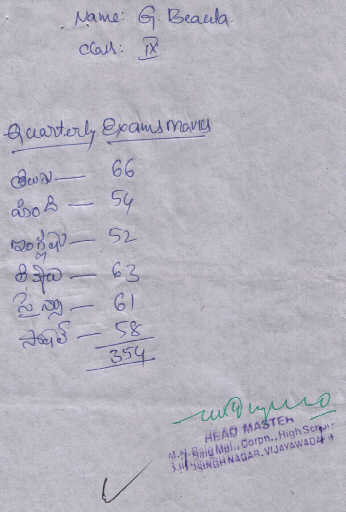 Name: G. Beaula
Class: IX
Quarterly Exams Marks
తెలుగు — 66
హిందీ — 54
ఇంగ్లీషు — 52
గణితం — 63
సైన్సు — 61
సోషల్ — 58
354
HEAD MASTER
Mpl., Corpn., High School
SINGH NAGAR, VIJAYAWADA